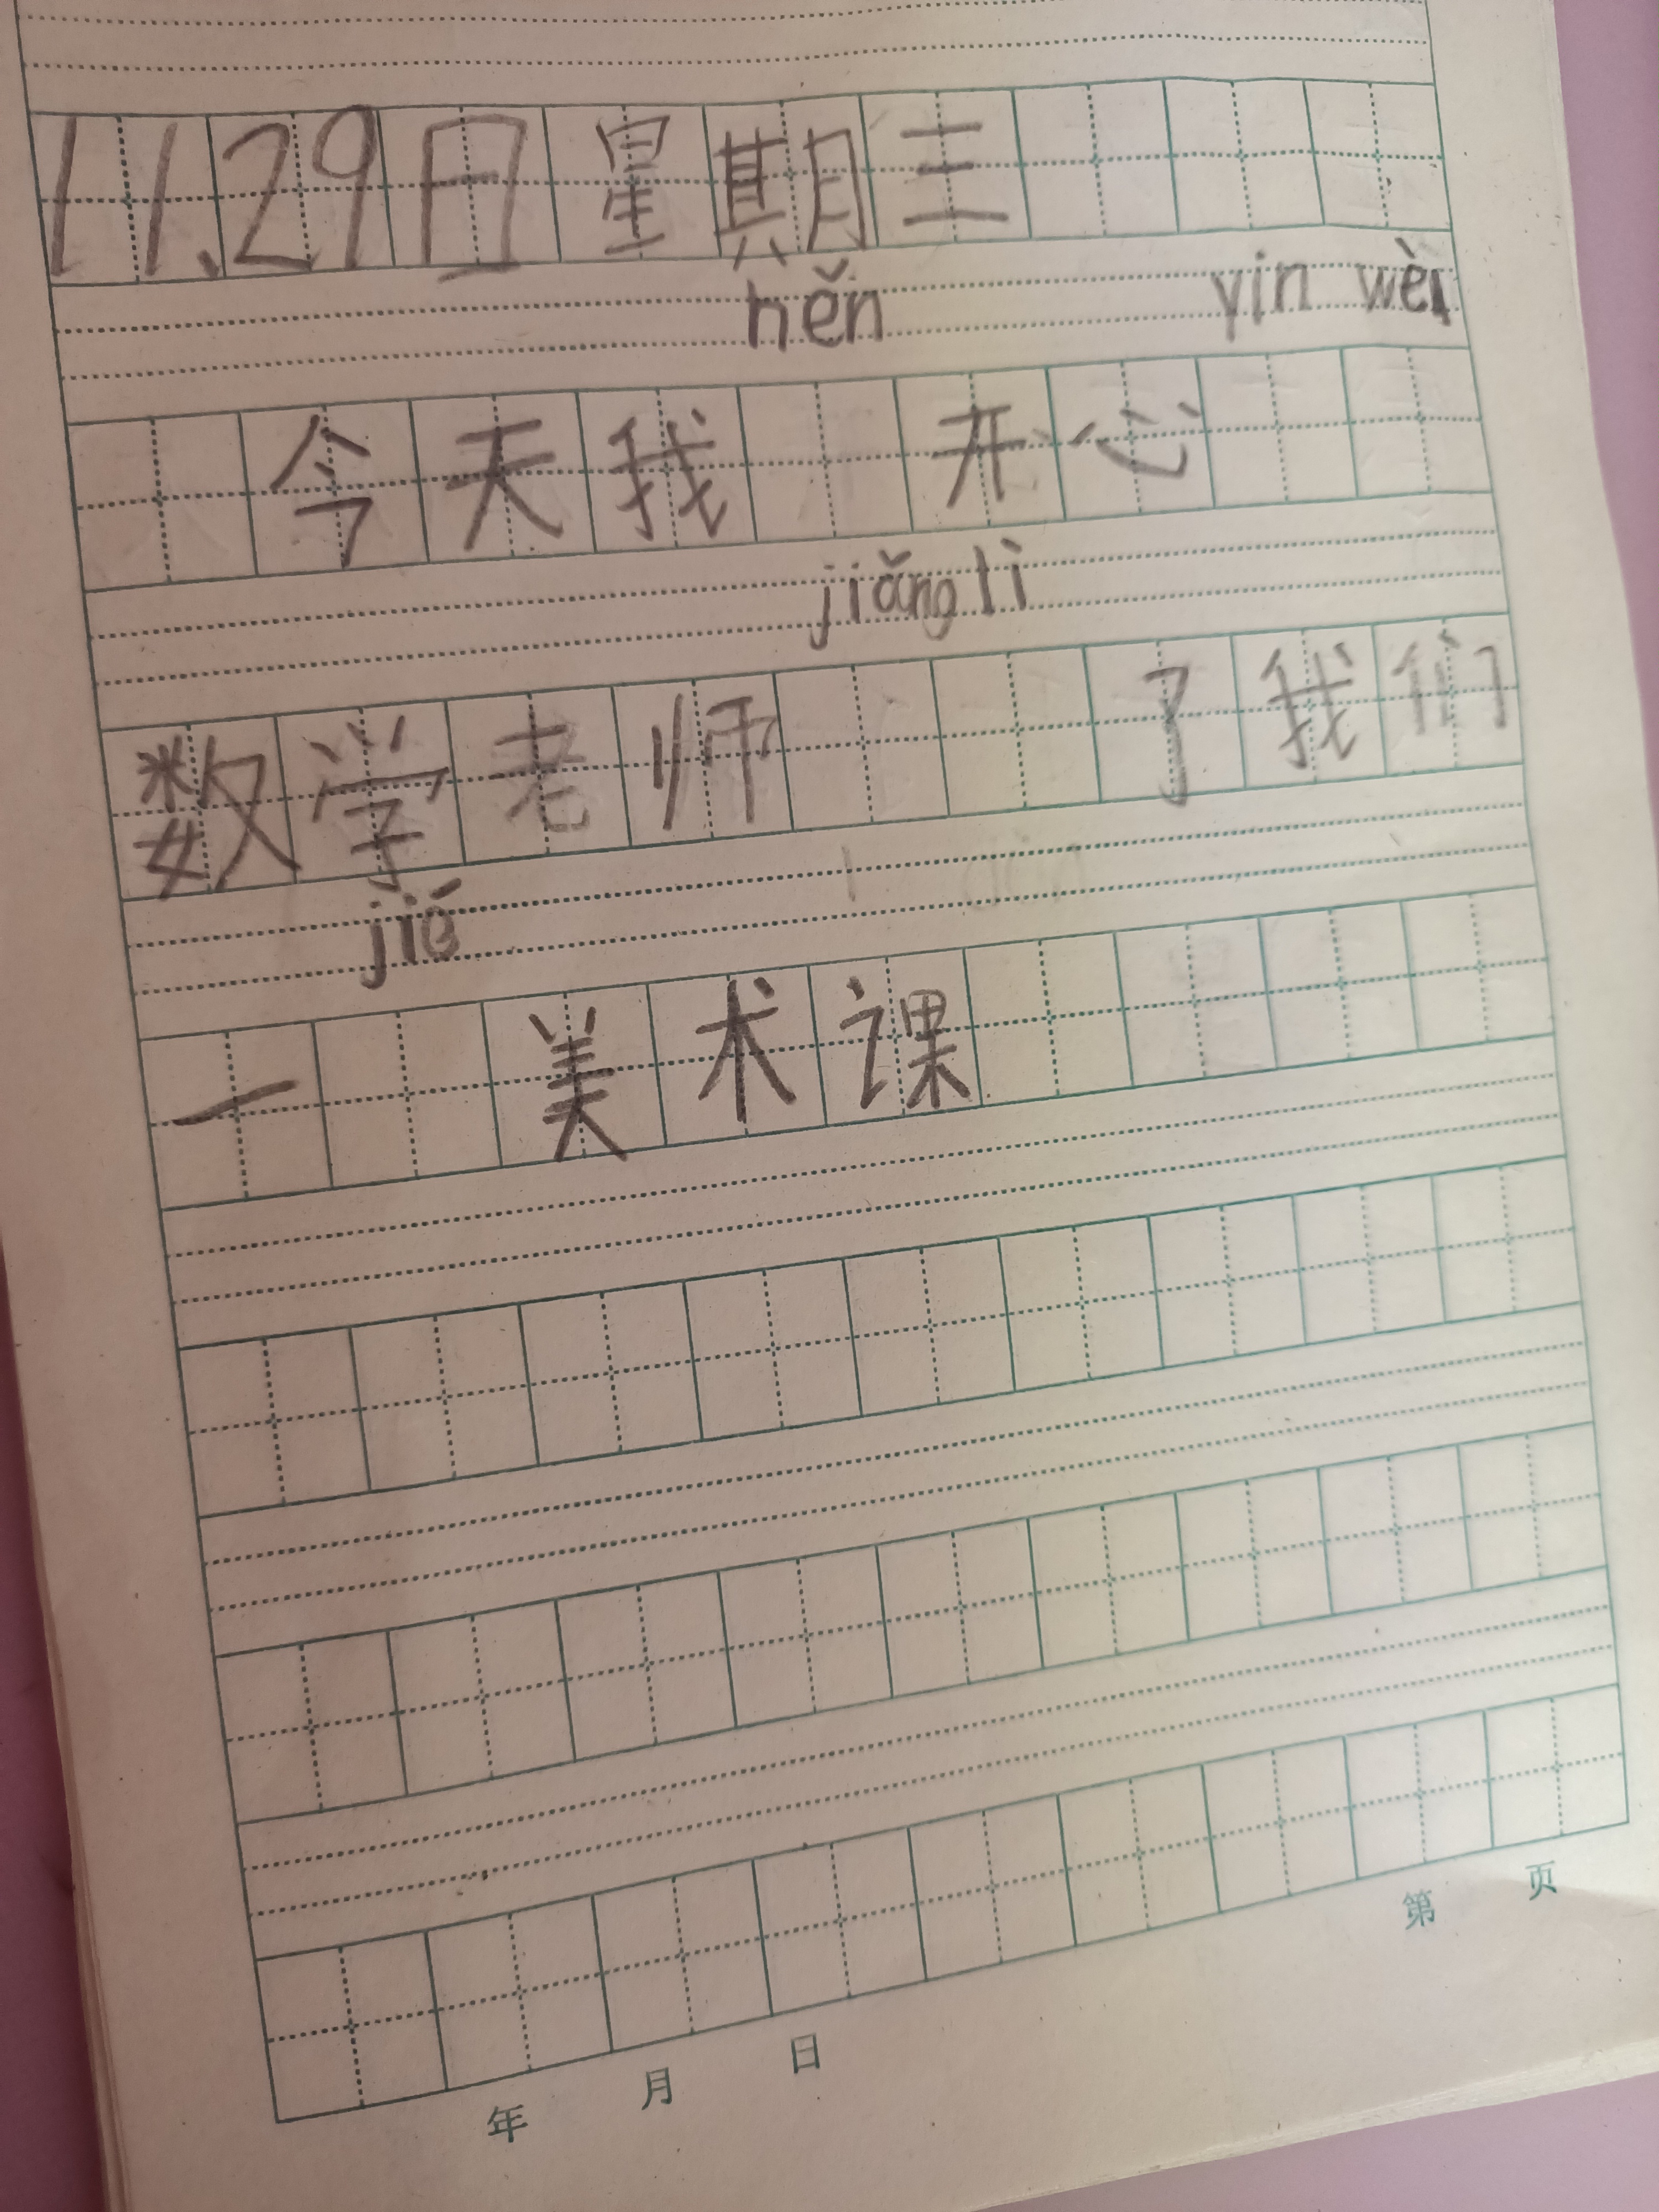 11.29日星期三
hěn yin wèi
今天我 开心
jiǎng lì
数学老师 了我们
jié
一 美术课
第 页
年 月 日